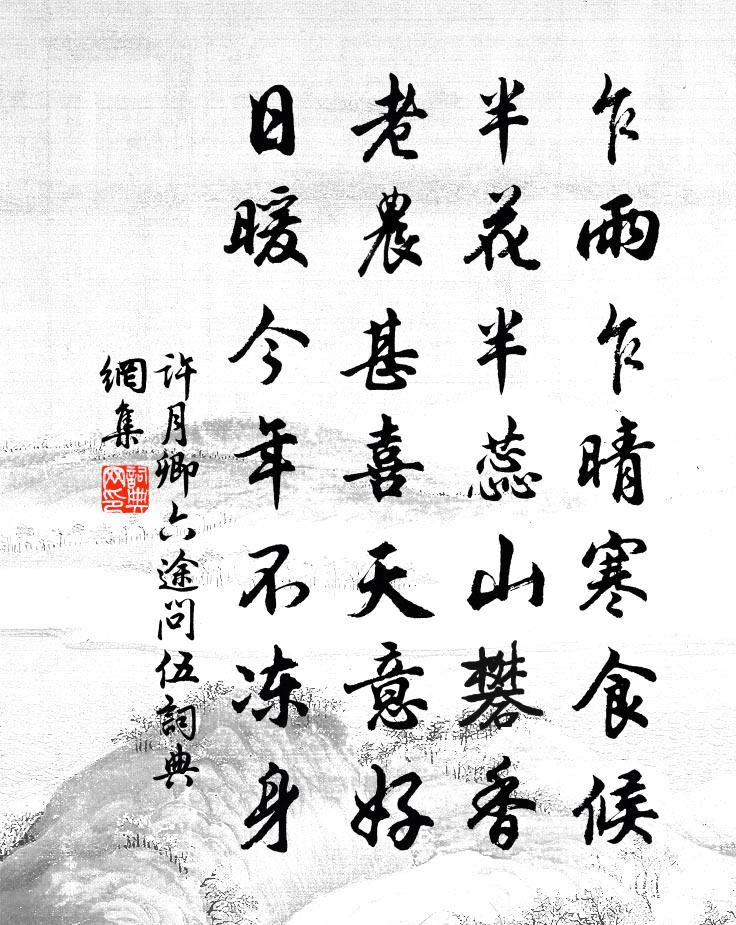 乍雨乍晴寒食候
半花半蕊山礬香
老農甚喜天意好
日暖今年不冻身
許月卿六途問伍詞典
網集
詞典
网印